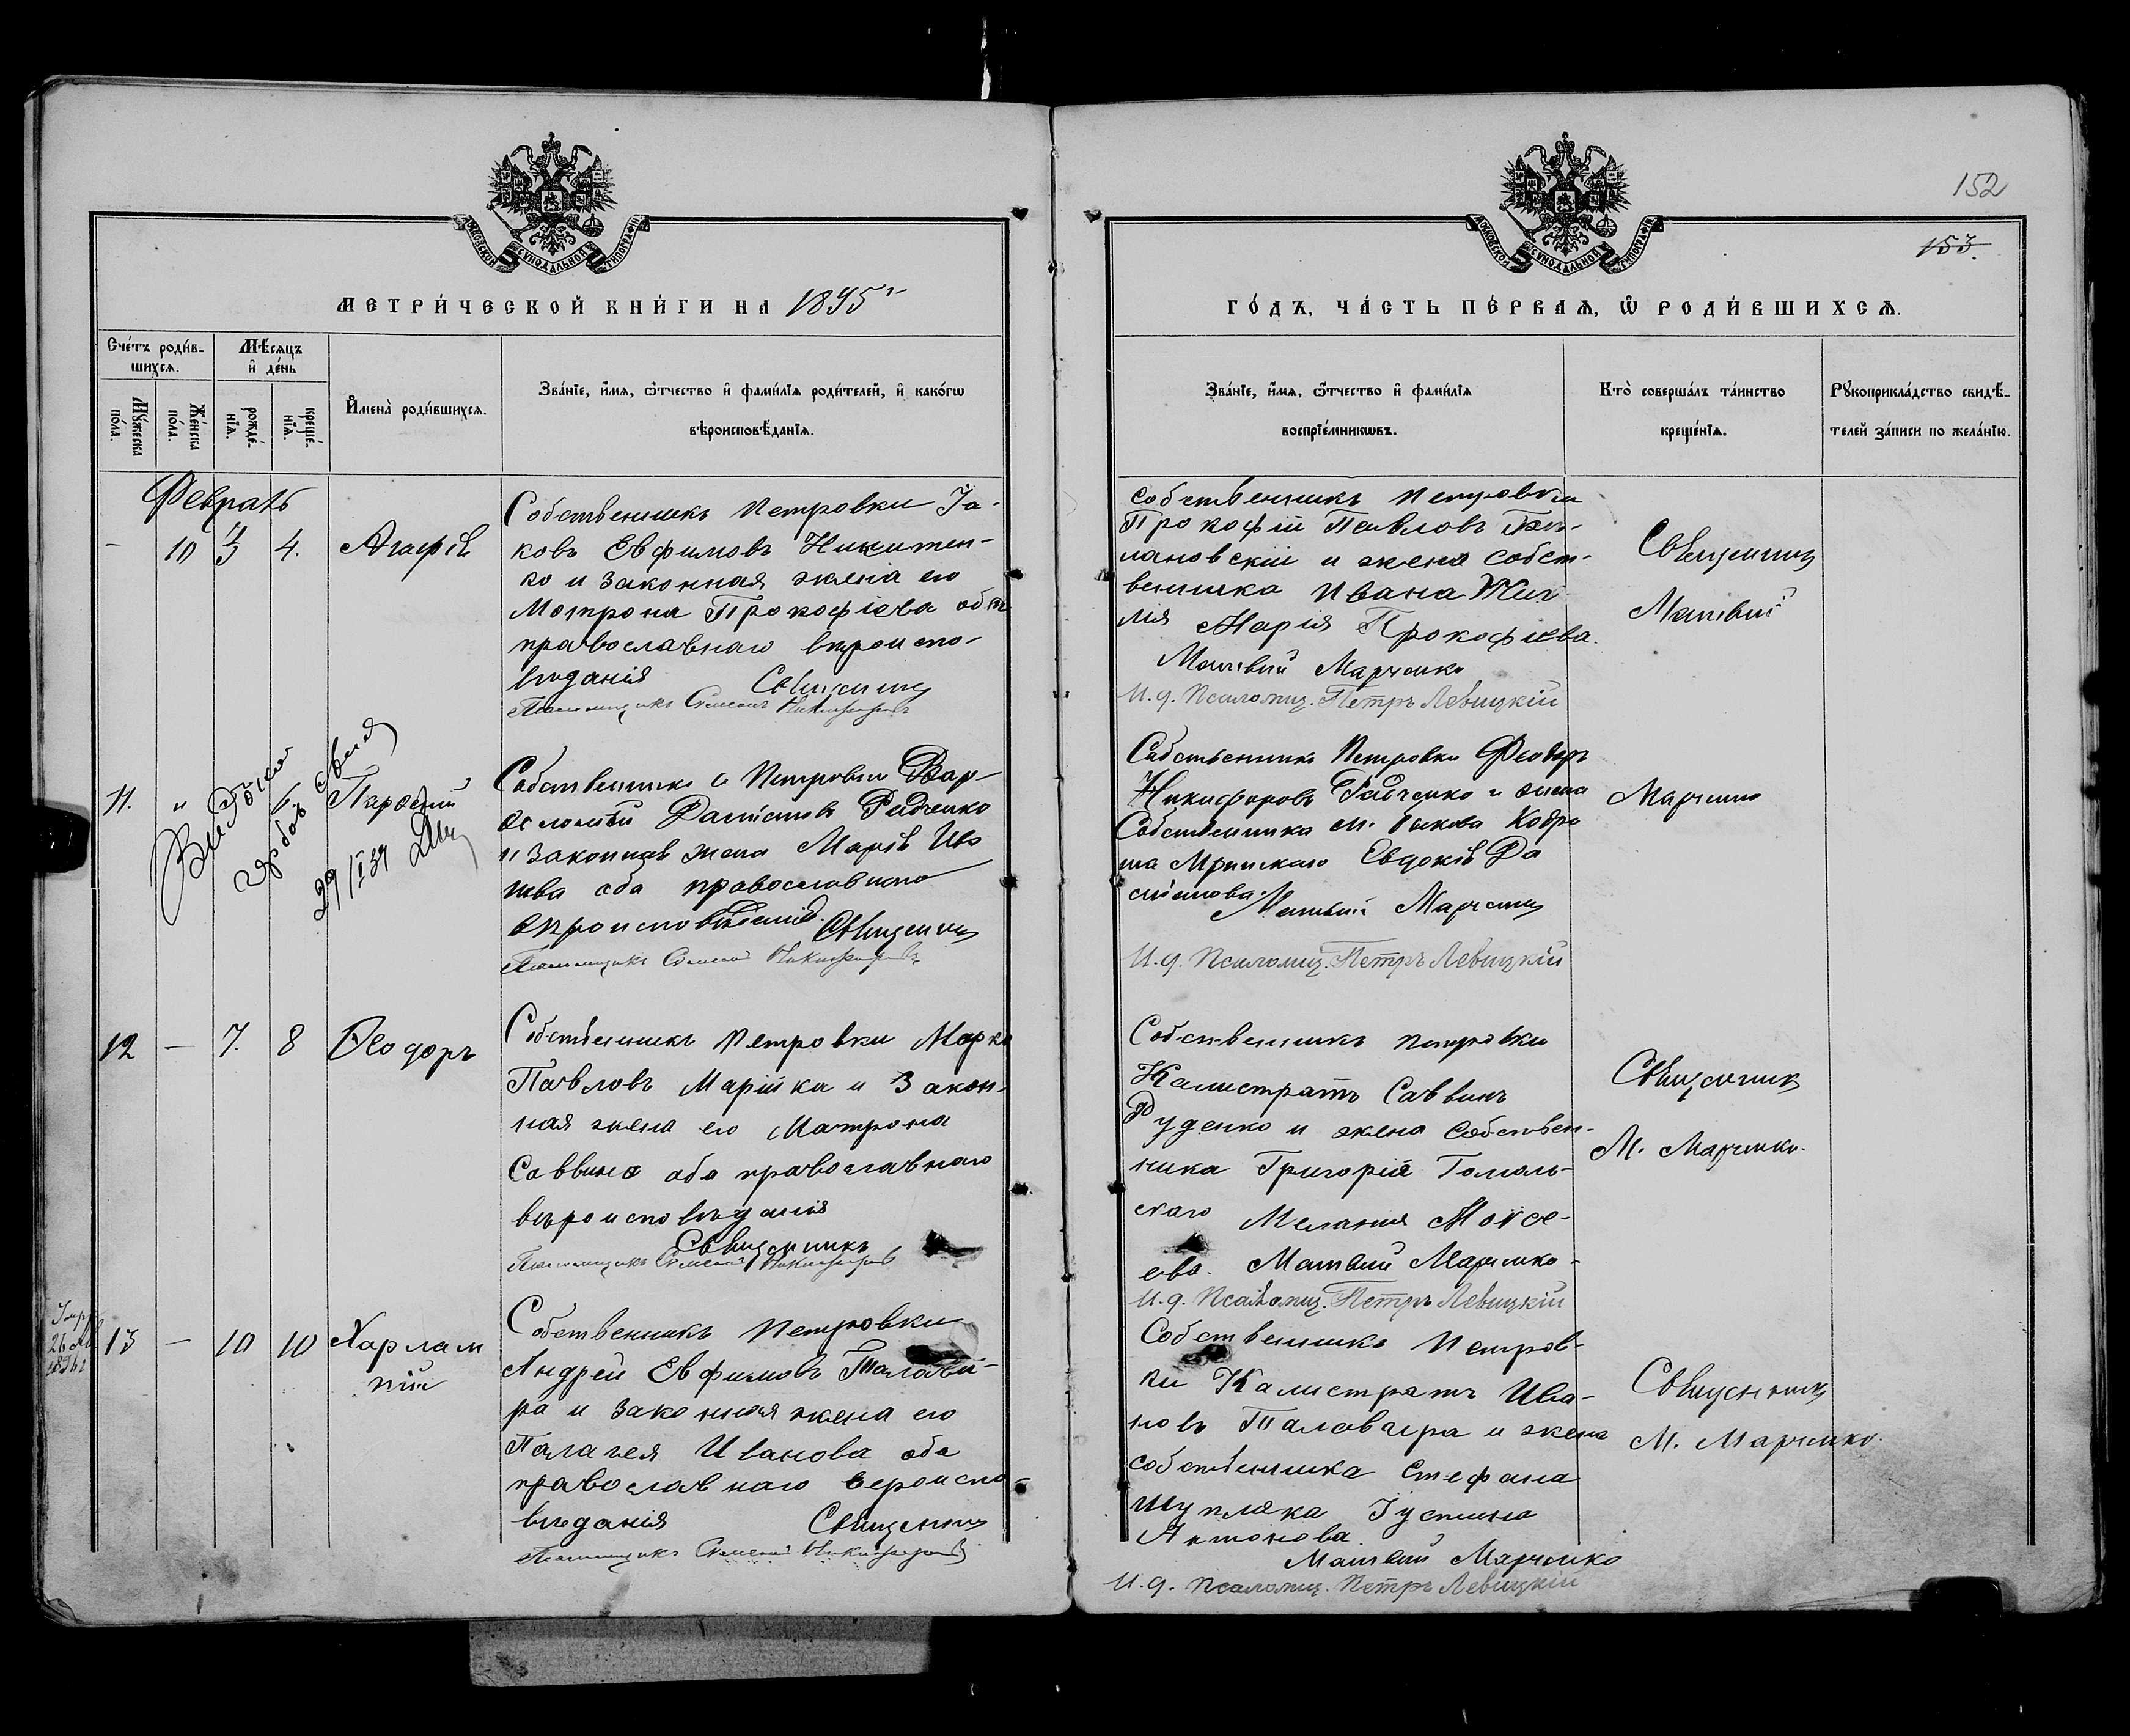 152
153.
МЕТРИ́ЧЕСКОЙ КНИ́ГИ НА 1895 г
ГО́ДЪ, ЧА́СТЬ ПЕ́РВАѦ, Ѡ҆ РОДИ́ВШИХСѦ.
Сче́тъ роди́в-
шихсѧ.
Мѣ́сяцъ
и҆ де́нь
Мꙋ́жеска
по́ла.
Же́нска
по́ла.
рожде́-
нїѧ.
креще́-
нїѧ.
И҆мена̀ роди́вшихсѧ.
Зва́нїе, и҆́мѧ, ѻ҆́тчество и҆ фами́лїѧ роди́телей, и҆ како́гѡ
вѣроисповѣ́данїѧ.
Зва́нїе, и҆́мѧ, ѻ҆́тчество и҆ фами́лїѧ
воспрїе́мникѡвъ.
Кто̀ соверша́лъ та́инство
креще́нїѧ.
Рꙋкоприкла́дство свидѣ́-
телей за́писи по жела́нїю.
Февраль
– 10 3 4. Агафія
Собственникъ Петровки Іа-
ковъ Евфимовъ Никитен-
ко и законная жена его
Мотрона Прокофіева оба
православнаго вѣроиспо-
вѣданія Священникъ
Псаломщикъ Симеонъ Никифоровъ
собственникъ Петровки
Прокофій Павловъ
и жена собст-
венника Ивана
Марія Прокофіева.
Матвий Марченко
И.д. Псаломщ. Петръ Левицкій
Священникъ
Матвий
11. „ 6.
29/I 39
Собственникъ с Петровки Вар-
Радченко
и законная жена Марія Ива
нова оба православнаго
вѣроисповѣданія. Священникъ
Псаломщикъ Симеонъ Никифоровъ
Собственникъ Петровки Феодоръ
Никифоровъ Радченко и жена
Собственника м. Быкова Кодра
та Евдокія Да
Матвий Марченко
И.д. Псаломщ. Петръ Левицкій
Марченко
12 – 7. 8 Ѳеодоръ
Собственникъ Петровки Марко
Павловъ Марійка и Закон-
ная жена его Матрона
Саввина оба православнаго
вѣроисповѣданія
Священникъ
Псаломщикъ Симеонъ Никифоровъ
Собственникъ Петровки
Калистратъ Саввинъ
Руденко и жена Собствен-
ника Григорія Гомоль-
скаго Меланія Моисе-
ева. Матвий Марченко
И.д. Псаломщ. Петръ Левицкій
Священникъ
М. Марченко.
13 – 10 10 Харлам
пій
Собственникъ Петровки
Андрей Евфимовъ Талавѝ-
ра и законная жена его
Палагея Иванова оба
православнаго вероиспо-
вѣданія Священникъ
Псаломщикъ Симеонъ Никифоровъ
Собственникъ Петров-
ки Калистратъ Ива-
новъ Талавира и жена
собственника Стефана
Шупляка Іустина
Антонова.
Матвий Марченко
И.д. Псаломщ. Петръ Левицкій
Священникъ
М. Марченко.